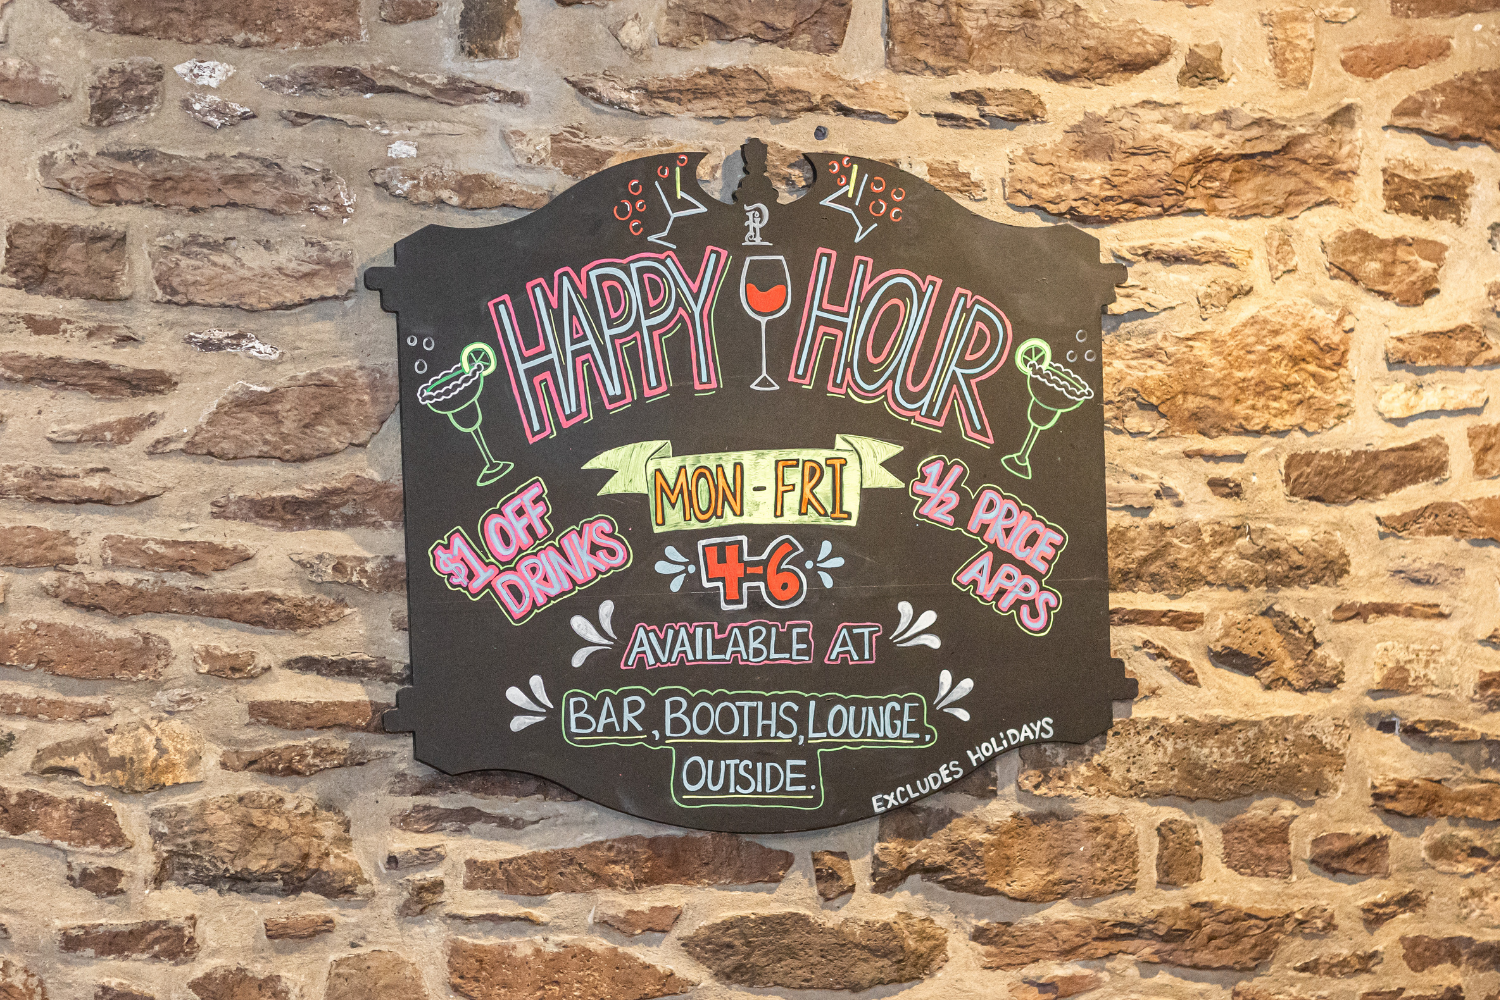 HAPPY HOUR
MON-FRI
$1 OFF
DRINKS
1/2 PRICE
APPS
4-6
AVAILABLE AT
BAR, BOOTHS, LOUNGE,
OUTSIDE.
EXCLUDES HOLIDAYS